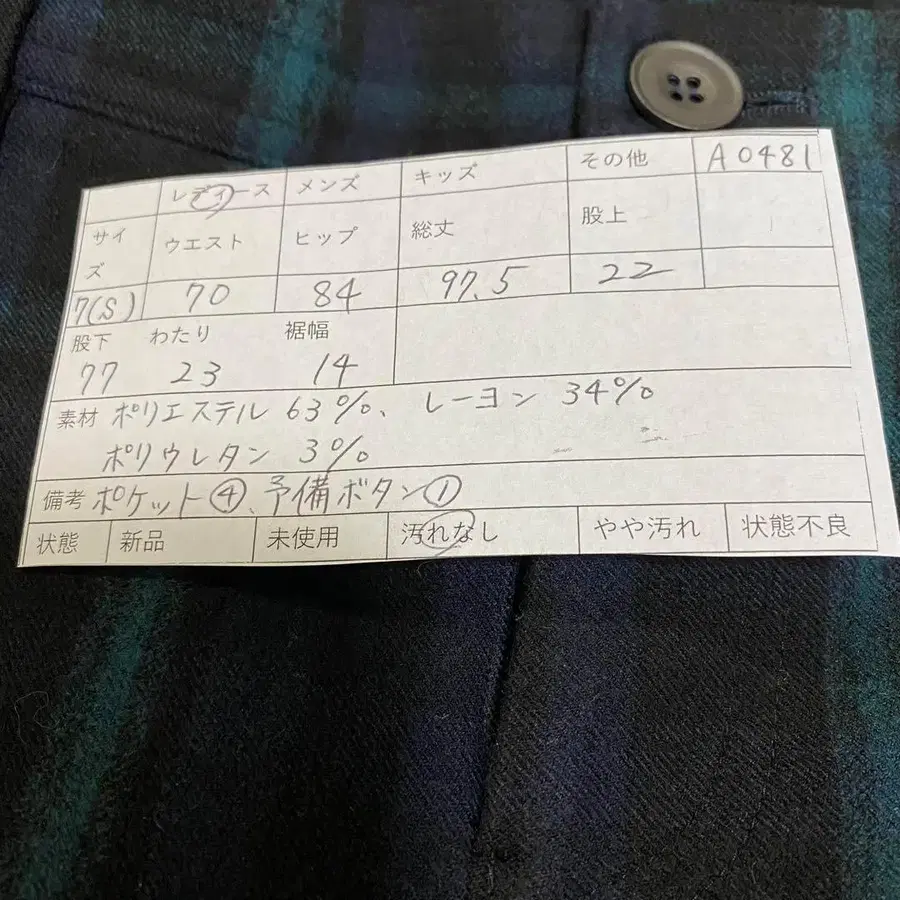 レディース メンズ キッズ その他 A0481
サイズ ウエスト ヒップ 総丈 股上
7(S) 70 84 97.5 22
股下 わたり 裾幅
77 23 14
素材 ポリエステル 63%、 レーヨン 34%
ポリウレタン 3%
備考 ポケット④、予備ボタン①
状態 新品 未使用 汚れなし やや汚れ 状態不良